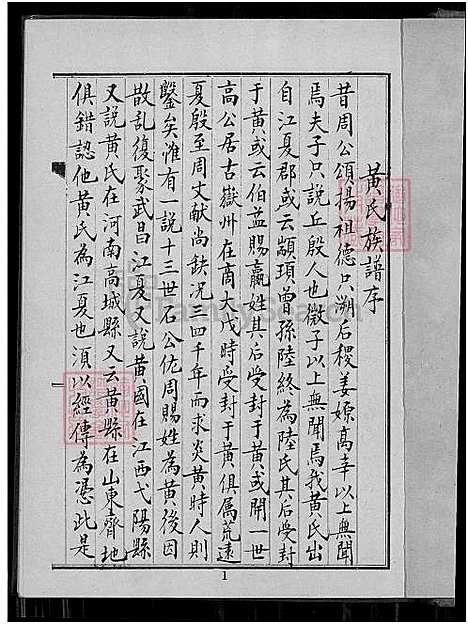 黄氏族譜序
昔周公頌揚祖德只溯后稷姜嫄高辛以上無聞
焉夫子只說丘殷人也微子以上無聞焉我黄氏出
自江夏郡或云顓頊曾孫陸終為陸氏其后受封
于黄或云伯益賜嬴姓其后受封于黄或開一世
高公居古嶽州在商大戊時受封于黄俱属荒遠
夏殷至周文献尚鈌况三四千年而求炎黄時人則
鑿矣惟有一說十三世石公佐周賜姓為黄後因
散乱復聚武昌江夏又說黄國在江西弋陽縣
又說黄氏在河南高城縣又云黄縣在山東齊地
俱錯認他黄氏為江夏也須以經傳為憑此是
1